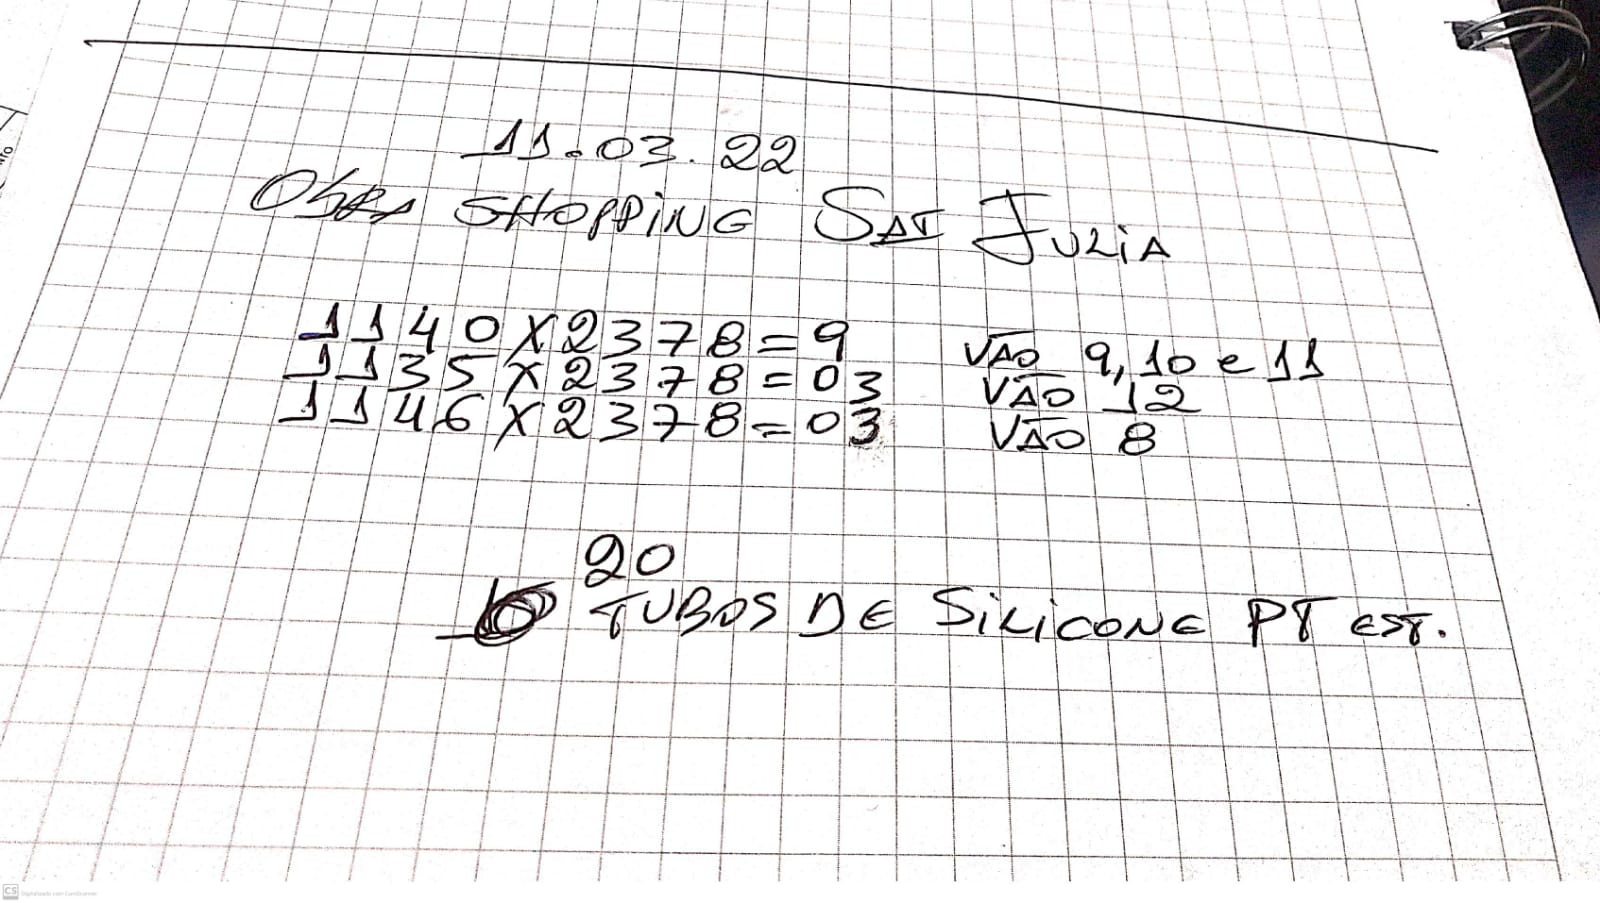 11.03.22
Obra SHOPPiNG SAT JULiA
1140X2378=9 VÃO 9,10 e 11
1135X2378=03 VÃO 12
1146X2378=03 VÃO 8
20
TUBOS DE SiLiCONE PT EST.
CS Digitalizado com CamScanner